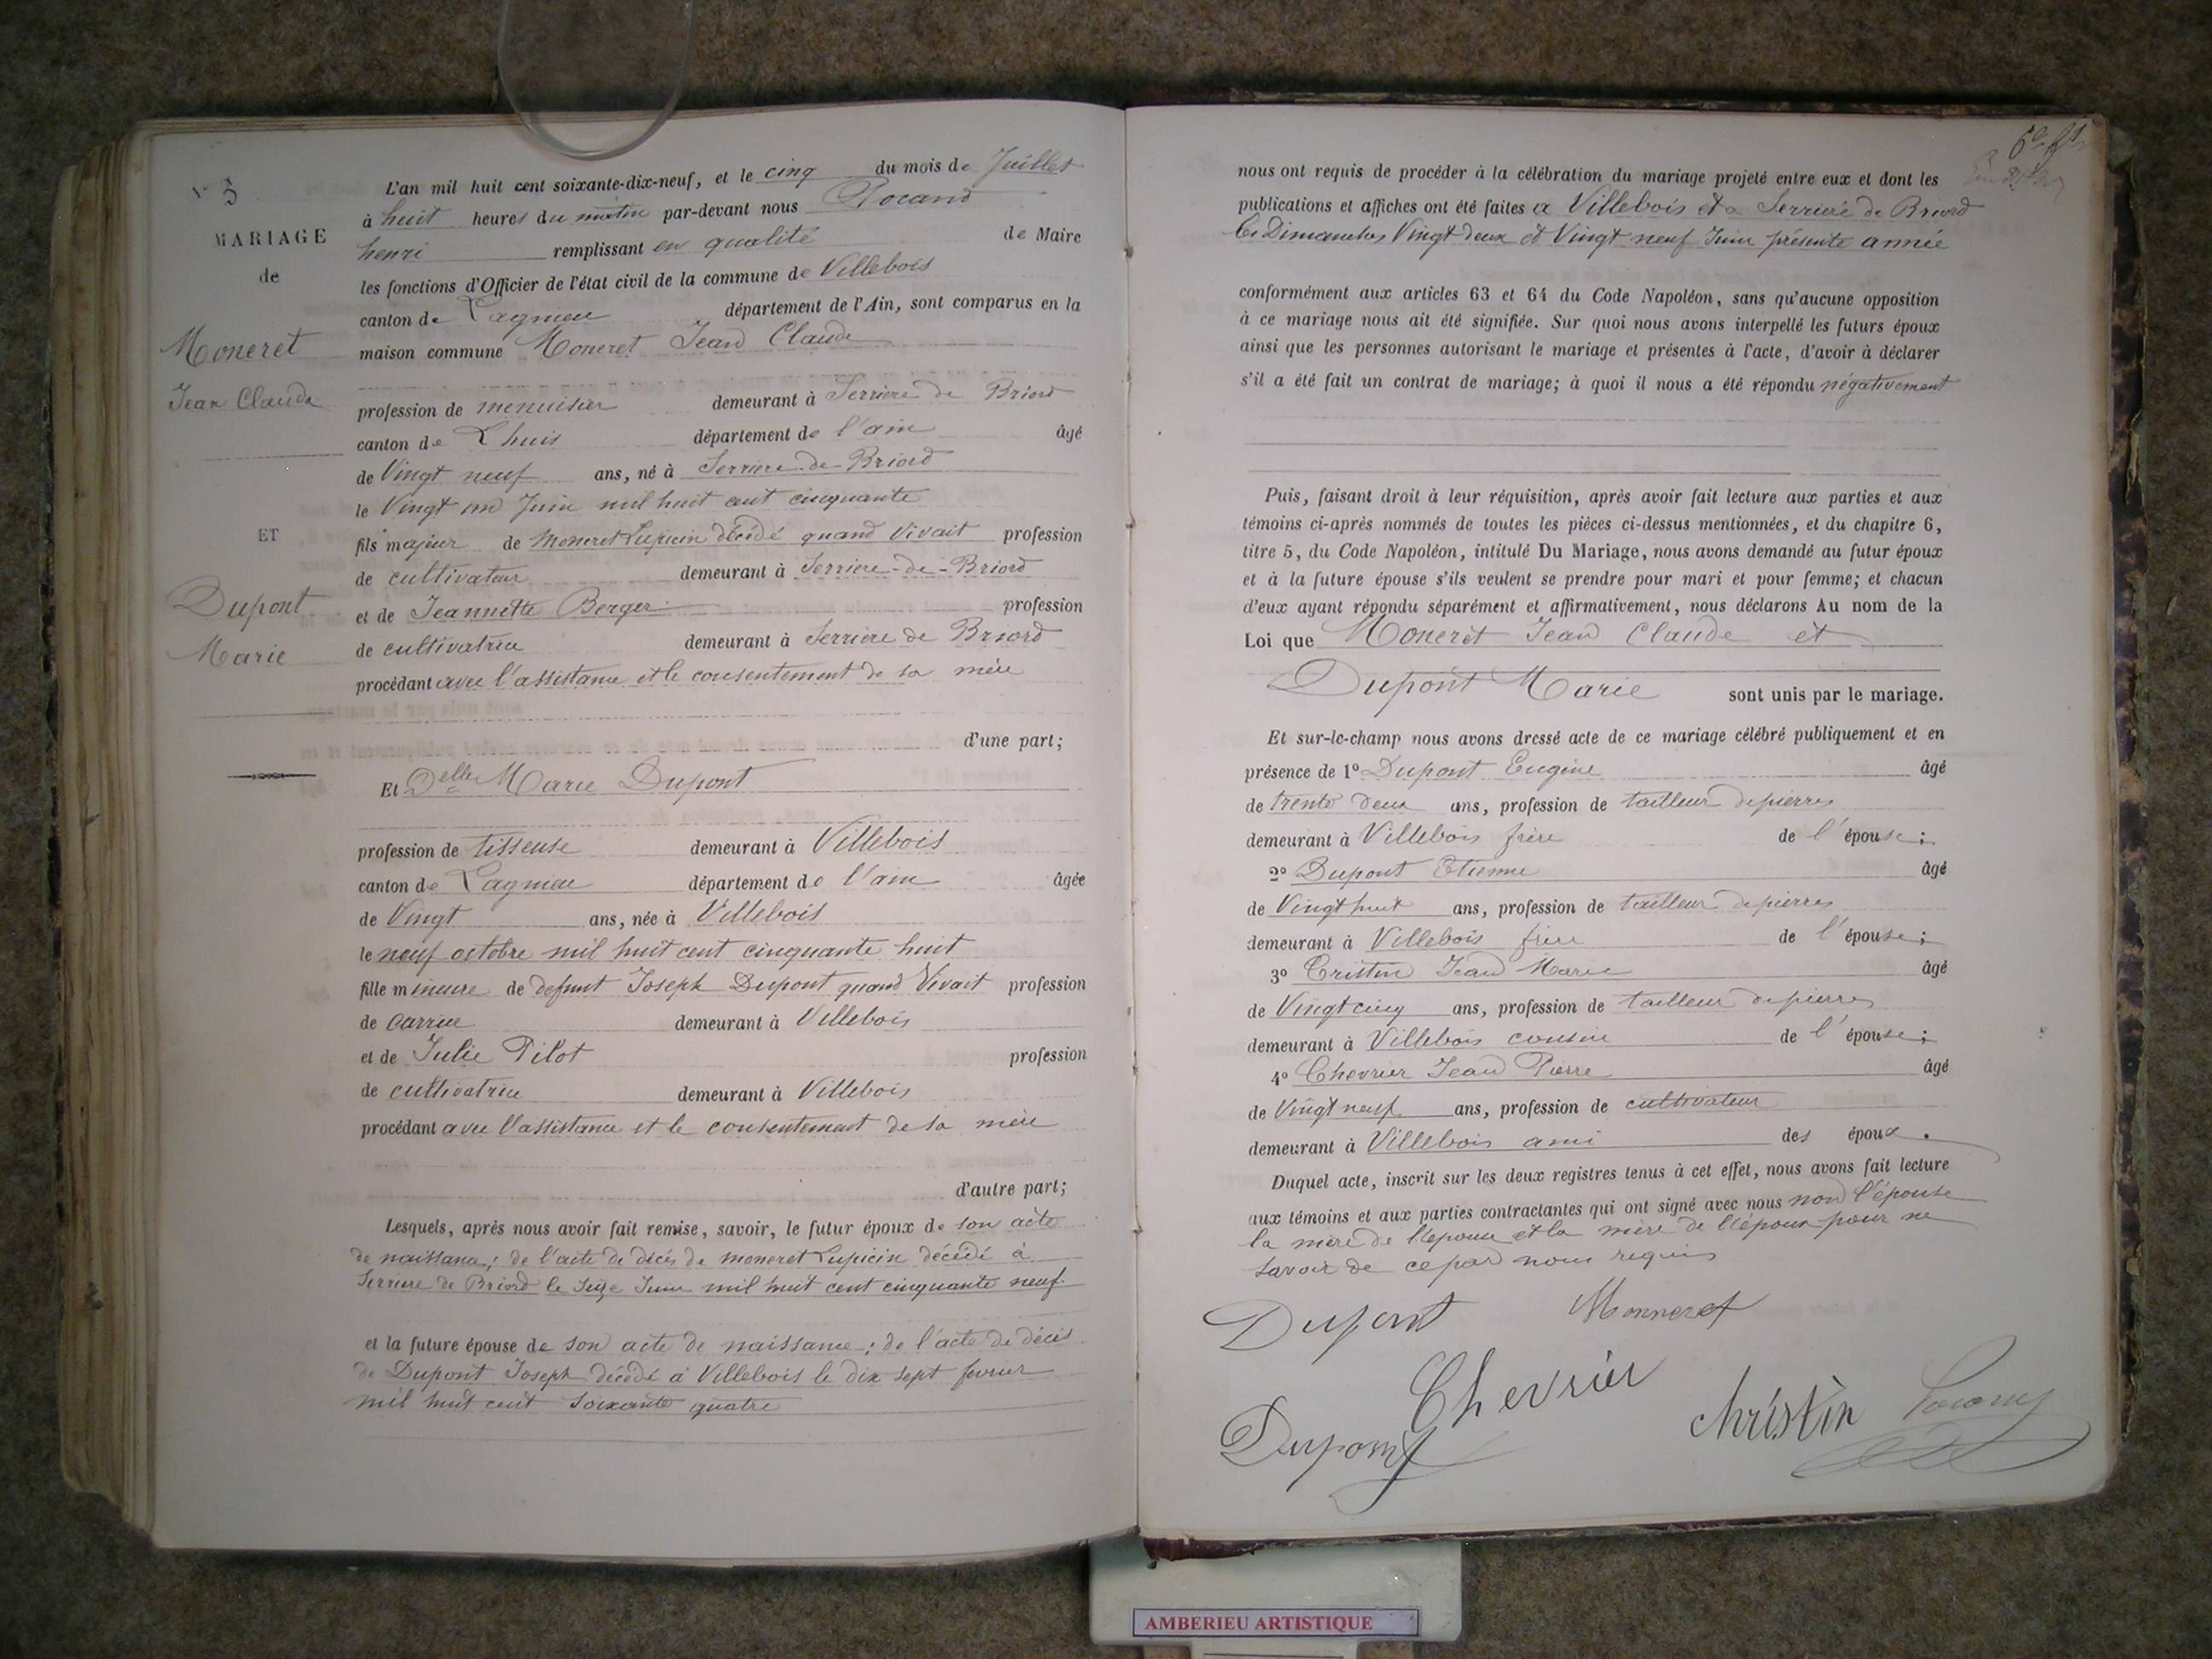 N° 5
MARIAGE
de
Moneret
Jean Claude
ET
Dupont
Marie
L'an mil huit cent soixante-dix-neuf, et le cinq du mois de Juillet
à huit heures du matin par-devant nous
henri remplissant en qualité de Maire
les fonctions d'Officier de l'état civil de la commune de Villebois
canton de Lagnieu département de l'Ain, sont comparus en la
maison commune Moneret Jean Claude
profession de menuisier demeurant à Serriere de Briord
canton de Lhuis département de l'ain âgé
de Vingt neuf ans, né à Serriere-de-Briord
le Vingt un Juin mil huit cent cinquante
fils majeur de Moneret Lupicin décédé quand Vivait profession
de cultivateur demeurant à Serriere-de-Briord
et de Jeannette Berger profession
de cultivatrice demeurant à Serriere de Briord
procédant avec l'assistance et le consentement de sa mère
d'une part;
Et Delle Marie Dupont
profession de tisseuse demeurant à Villebois
canton de Lagnieu département de l'ain âgée
de Vingt ans, née à Villebois
le neuf octobre mil huit cent cinquante huit
fille mineure de defunt Joseph Dupont quand Vivait profession
de carrier demeurant à Villebois
et de Julie Pilot profession
de cultivatrice demeurant à Villebois
procédant avec l'assistance et le consentement de sa mère
d'autre part;
Lesquels, après nous avoir fait remise, savoir, le futur époux de son acte
de naissance; de l'acte de décès de Moneret Lupicin décédé à
Serriere de Briord le Seize Juin mil huit cent cinquante neuf
et la future épouse de son acte de naissance; de l'acte de décès
de Dupont Joseph décédé à Villebois le dix sept fevrier
mil huit cent soixante quatre
nous ont requis de procéder à la célébration du mariage projeté entre eux et dont les
publications et affiches ont été faites a Villebois et a Serriere de Briord
les Dimanches Vingt deux et Vingt neuf Juin présente année
conformément aux articles 63 et 64 du Code Napoléon, sans qu'aucune opposition
à ce mariage nous ait été signifiée. Sur quoi nous avons interpellé les futurs époux
ainsi que les personnes autorisant le mariage et présentes à l'acte, d'avoir à déclarer
s'il a été fait un contrat de mariage; à quoi il nous a été répondu négativement
Puis, faisant droit à leur réquisition, après avoir fait lecture aux parties et aux
témoins ci-après nommés de toutes les pièces ci-dessus mentionnées, et du chapitre 6,
titre 5, du Code Napoléon, intitulé Du Mariage, nous avons demandé au futur époux
et à la future épouse s'ils veulent se prendre pour mari et pour femme; et chacun
d'eux ayant répondu séparément et affirmativement, nous déclarons Au nom de la
Loi que Moneret Jean Claude et
Dupont Marie sont unis par le mariage.
Et sur-le-champ nous avons dressé acte de ce mariage célébré publiquement et en
présence de 1° Dupont Eugène âgé
de trente deux ans, profession de tailleur de pierres
demeurant à Villebois frère de l'épouse;
2° Dupont Etienne âgé
de Vingt huit ans, profession de tailleur de pierres
demeurant à Villebois frère de l'épouse;
3° Cristin Jean Marie âgé
de Vingt cinq ans, profession de tailleur de pierres
demeurant à Villebois cousin de l'épouse;
4° Chevrier Jean Pierre âgé
de Vingt neuf ans, profession de cultivateur
demeurant à Villebois ami des époux.
Duquel acte, inscrit sur les deux registres tenus à cet effet, nous avons fait lecture
aux témoins et aux parties contractantes qui ont signé avec nous non l'épouse
la mère de l'épouse et la mère de l'époux pour ne
savoir de ce par nous requis
Dupont Monneret
Chevrier
Dupont Christin
AMBERIEU ARTISTIQUE